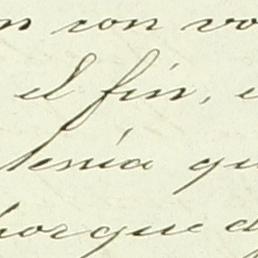 n con vo
el fin, e
tenía qu
porque d